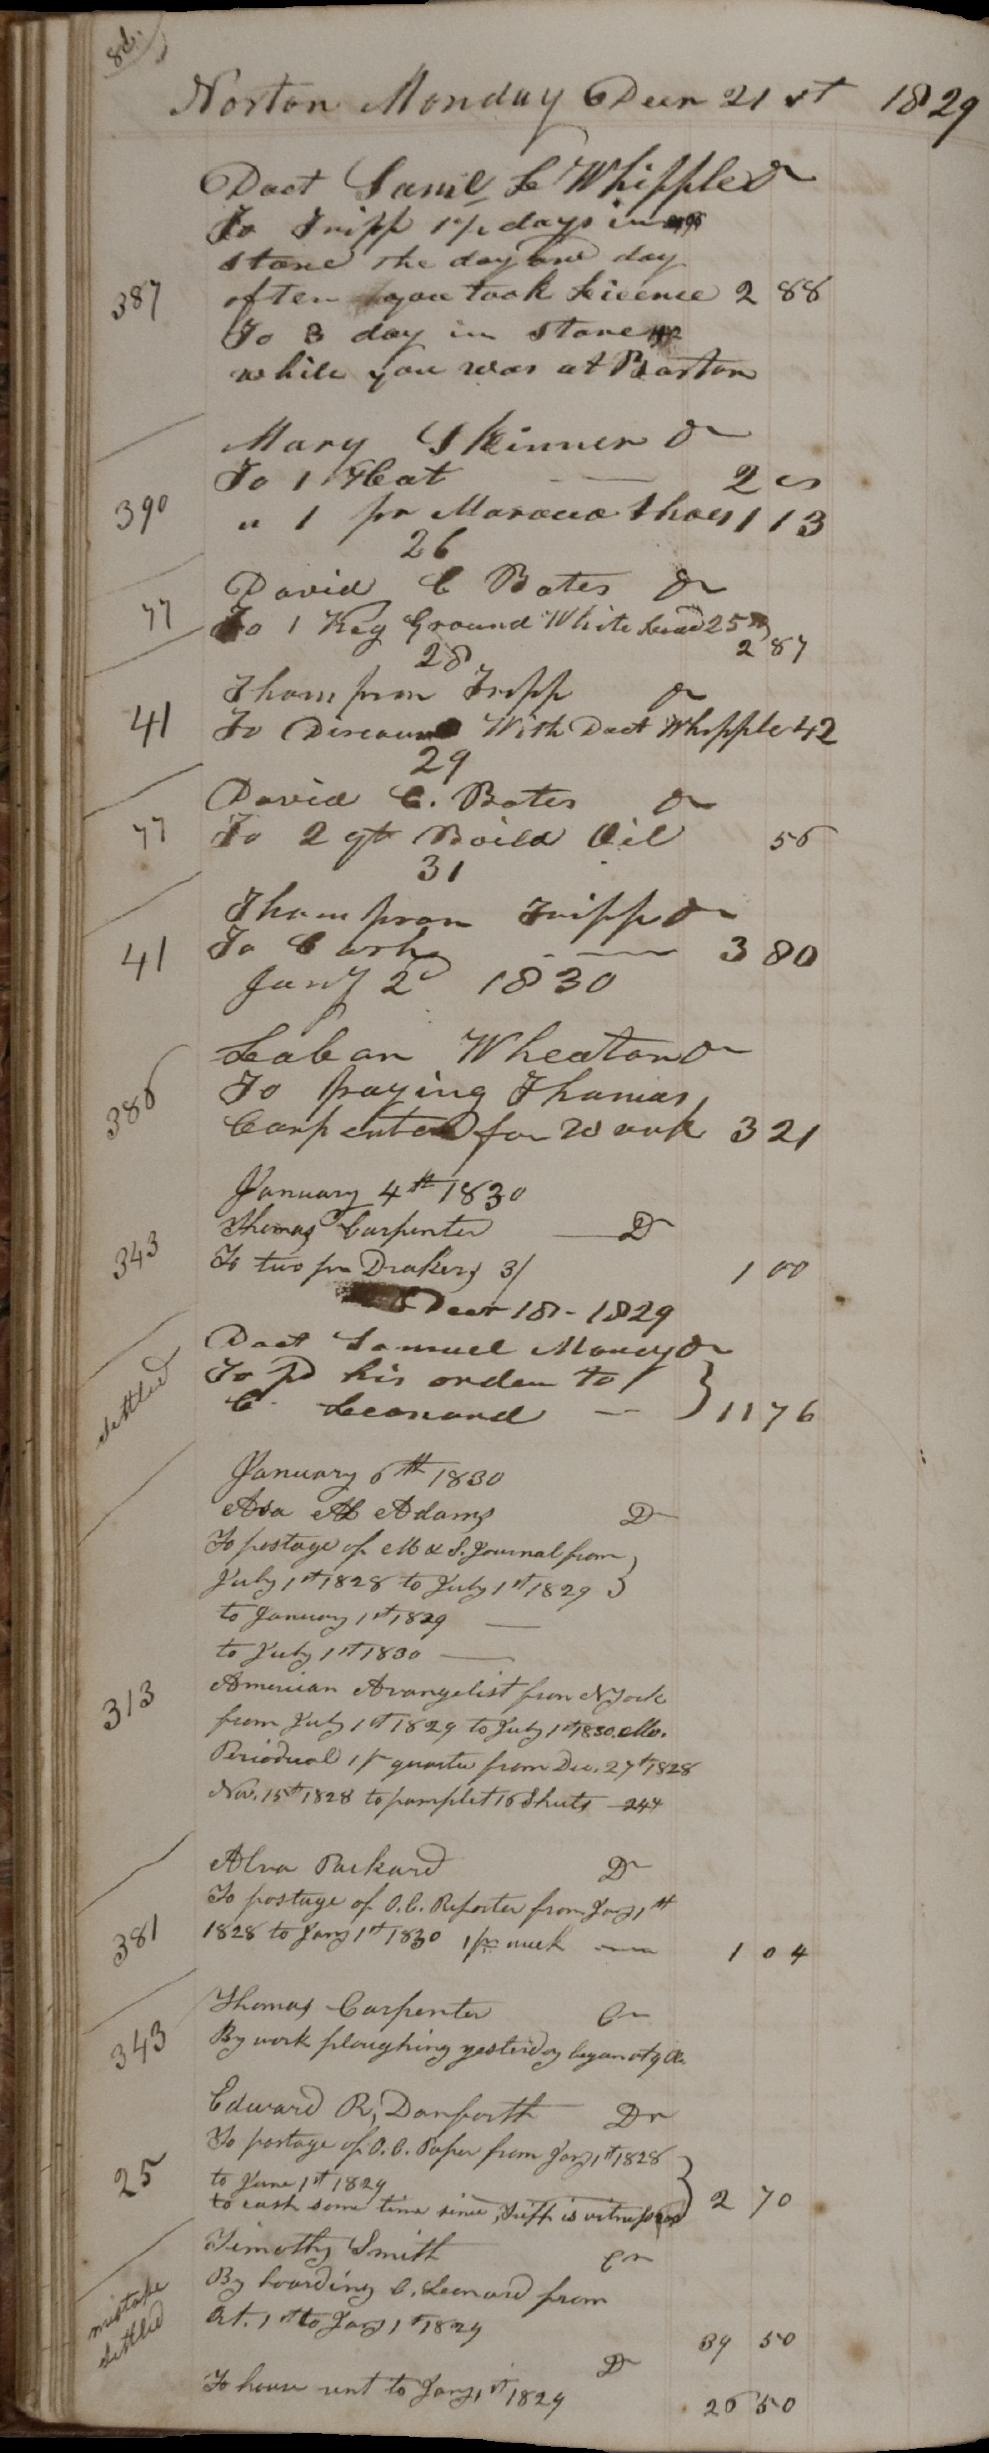 82.
Norton Monday Decr 21st 1829
Doct Saml L Whipple Dr
To Tripp 1½ days in
store the day and day
387 often you took Licence 2 88
To 3 day in store
while you was at Boston
Mary Skinner Dr
To 1 Hat 2 00
390 " 1 pr Marocco Shoes 1 13
26
David C Bates Dr
77 To 1 Keg Ground White Lead 25 lb
2 87
28
Thompson Tripp Dr
41 To Discount With Doct Whipple 42
29
David C. Bates Dr
77 To 2 qts Boild Oil 56
31
Thompson Tripp Dr
41 To Cash 3 80
Jany 2d 1830
Laban Wheaton Dr
386 To paying Thomas
Carpenter for Work 3 21
January 4th 1830
Thomas Carpenter Dr
343 To two pr Drakers 3/ 1 00
Decr 18 - 1829
Doct Samuel Morey Dr
settled To pd his order to
C. Leonard 11 76
January 6th 1830
Asa M Adams Dr
To postage of M & S. Journal from
July 1st 1828 to July 1st 1829
to January 1st 1829
to July 1st 1830
313 American Avangelist from N York
from July 1st 1829 to July 1st 1830. Mo.
Periodical 1 pr quarter from Dec. 27th 1828
Nov. 15th 1828 to pamplet 16 Shuts 244
Alva Packard Dr
To postage of O.C. Reporter from Jany 1st
381 1828 to Jany 1st 1830 1 pr week 1 04
Thomas Carpenter Cr
343 By work ploughing yesterday began at 9 Ock
Edward R, Danforth Dr
To postage of O.C. Paper from Jany 1st 1828
25 to June 1st 1829
to cash some time since, Tripp is witness 2 70
Timothy Smith Cr
mistake By boarding C. Leonard from
settled Oct. 1st to Jany 1st 1829 39 50
Dr
To house rent to Jany 1st 1829 26 50